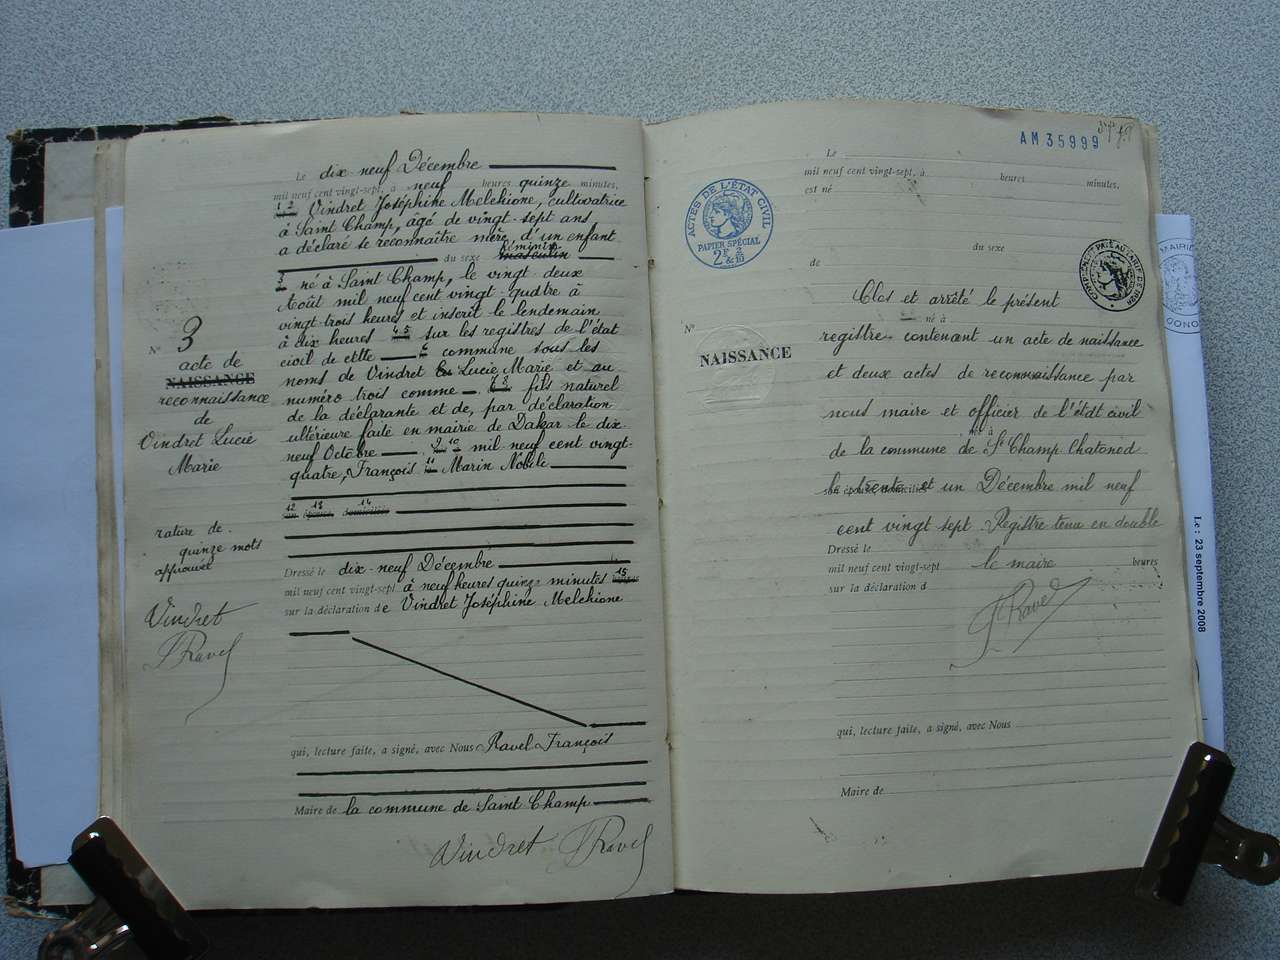 Le dix-neuf Décembre
mil neuf cent vingt-sept, à neuf heures quinze minutes,
1 2 Vindret Joséphine Melchione, cultivatrice
à Saint Champ, âgé de vingt-sept ans
a déclaré se reconnaître mère d'un enfant
féminin
du sexe masculin
3 né à Saint Champ, le vingt deux
Août mil neuf cent vingt-quatre à
vingt trois heures et inscrit le lendemain
à dix heures 4 5 sur les registres de l'état
civil de cette 6 commune sous les
noms de Vindret Lucie Marie et au
numéro trois comme 7 8 fils naturel
de la déclarante et de, par déclaration
ultérieure faite en mairie de Dakar le dix
neuf Octobre 9 10 mil neuf cent vingt-
quatre, François 11 Marin Nobile
12 13 14
son épouse, domiciliés
Dressé le dix-neuf Décembre
mil neuf cent vingt-sept à neuf heures quinze minutes 15 heures
sur la déclaration de Vindret Joséphine Melchione
qui, lecture faite, a signé, avec Nous Ravel François
Maire de la commune de Saint Champ
Vindret FRavel
N° 3
acte de
NAISSANCE
reconnaissance
de
Vindret Lucie
Marie
rature de
quinze mots
approuvée
Vindret
FRavel
AM 35999
Le
mil neuf cent vingt-sept, à heures minutes,
est né
ACTES DE L'ÉTAT CIVIL
PAPIER SPÉCIAL
du sexe
de
Clos et arrêté le présent
né à
N°
NAISSANCE
registre contenant un acte de naissance
et deux actes de reconnaissance par
nous maire et officier de l'état civil
de la commune de St Champ Chatonod
le trente et un Décembre mil neuf
son épouse, domiciliés
cent vingt sept. Registre tenu en double
Dressé le
mil neuf cent vingt-sept le maire heures
sur la déclaration d
FRavel
qui, lecture faite, a signé, avec Nous
Maire de
MAIRIE
Le : 23 septembre 2008